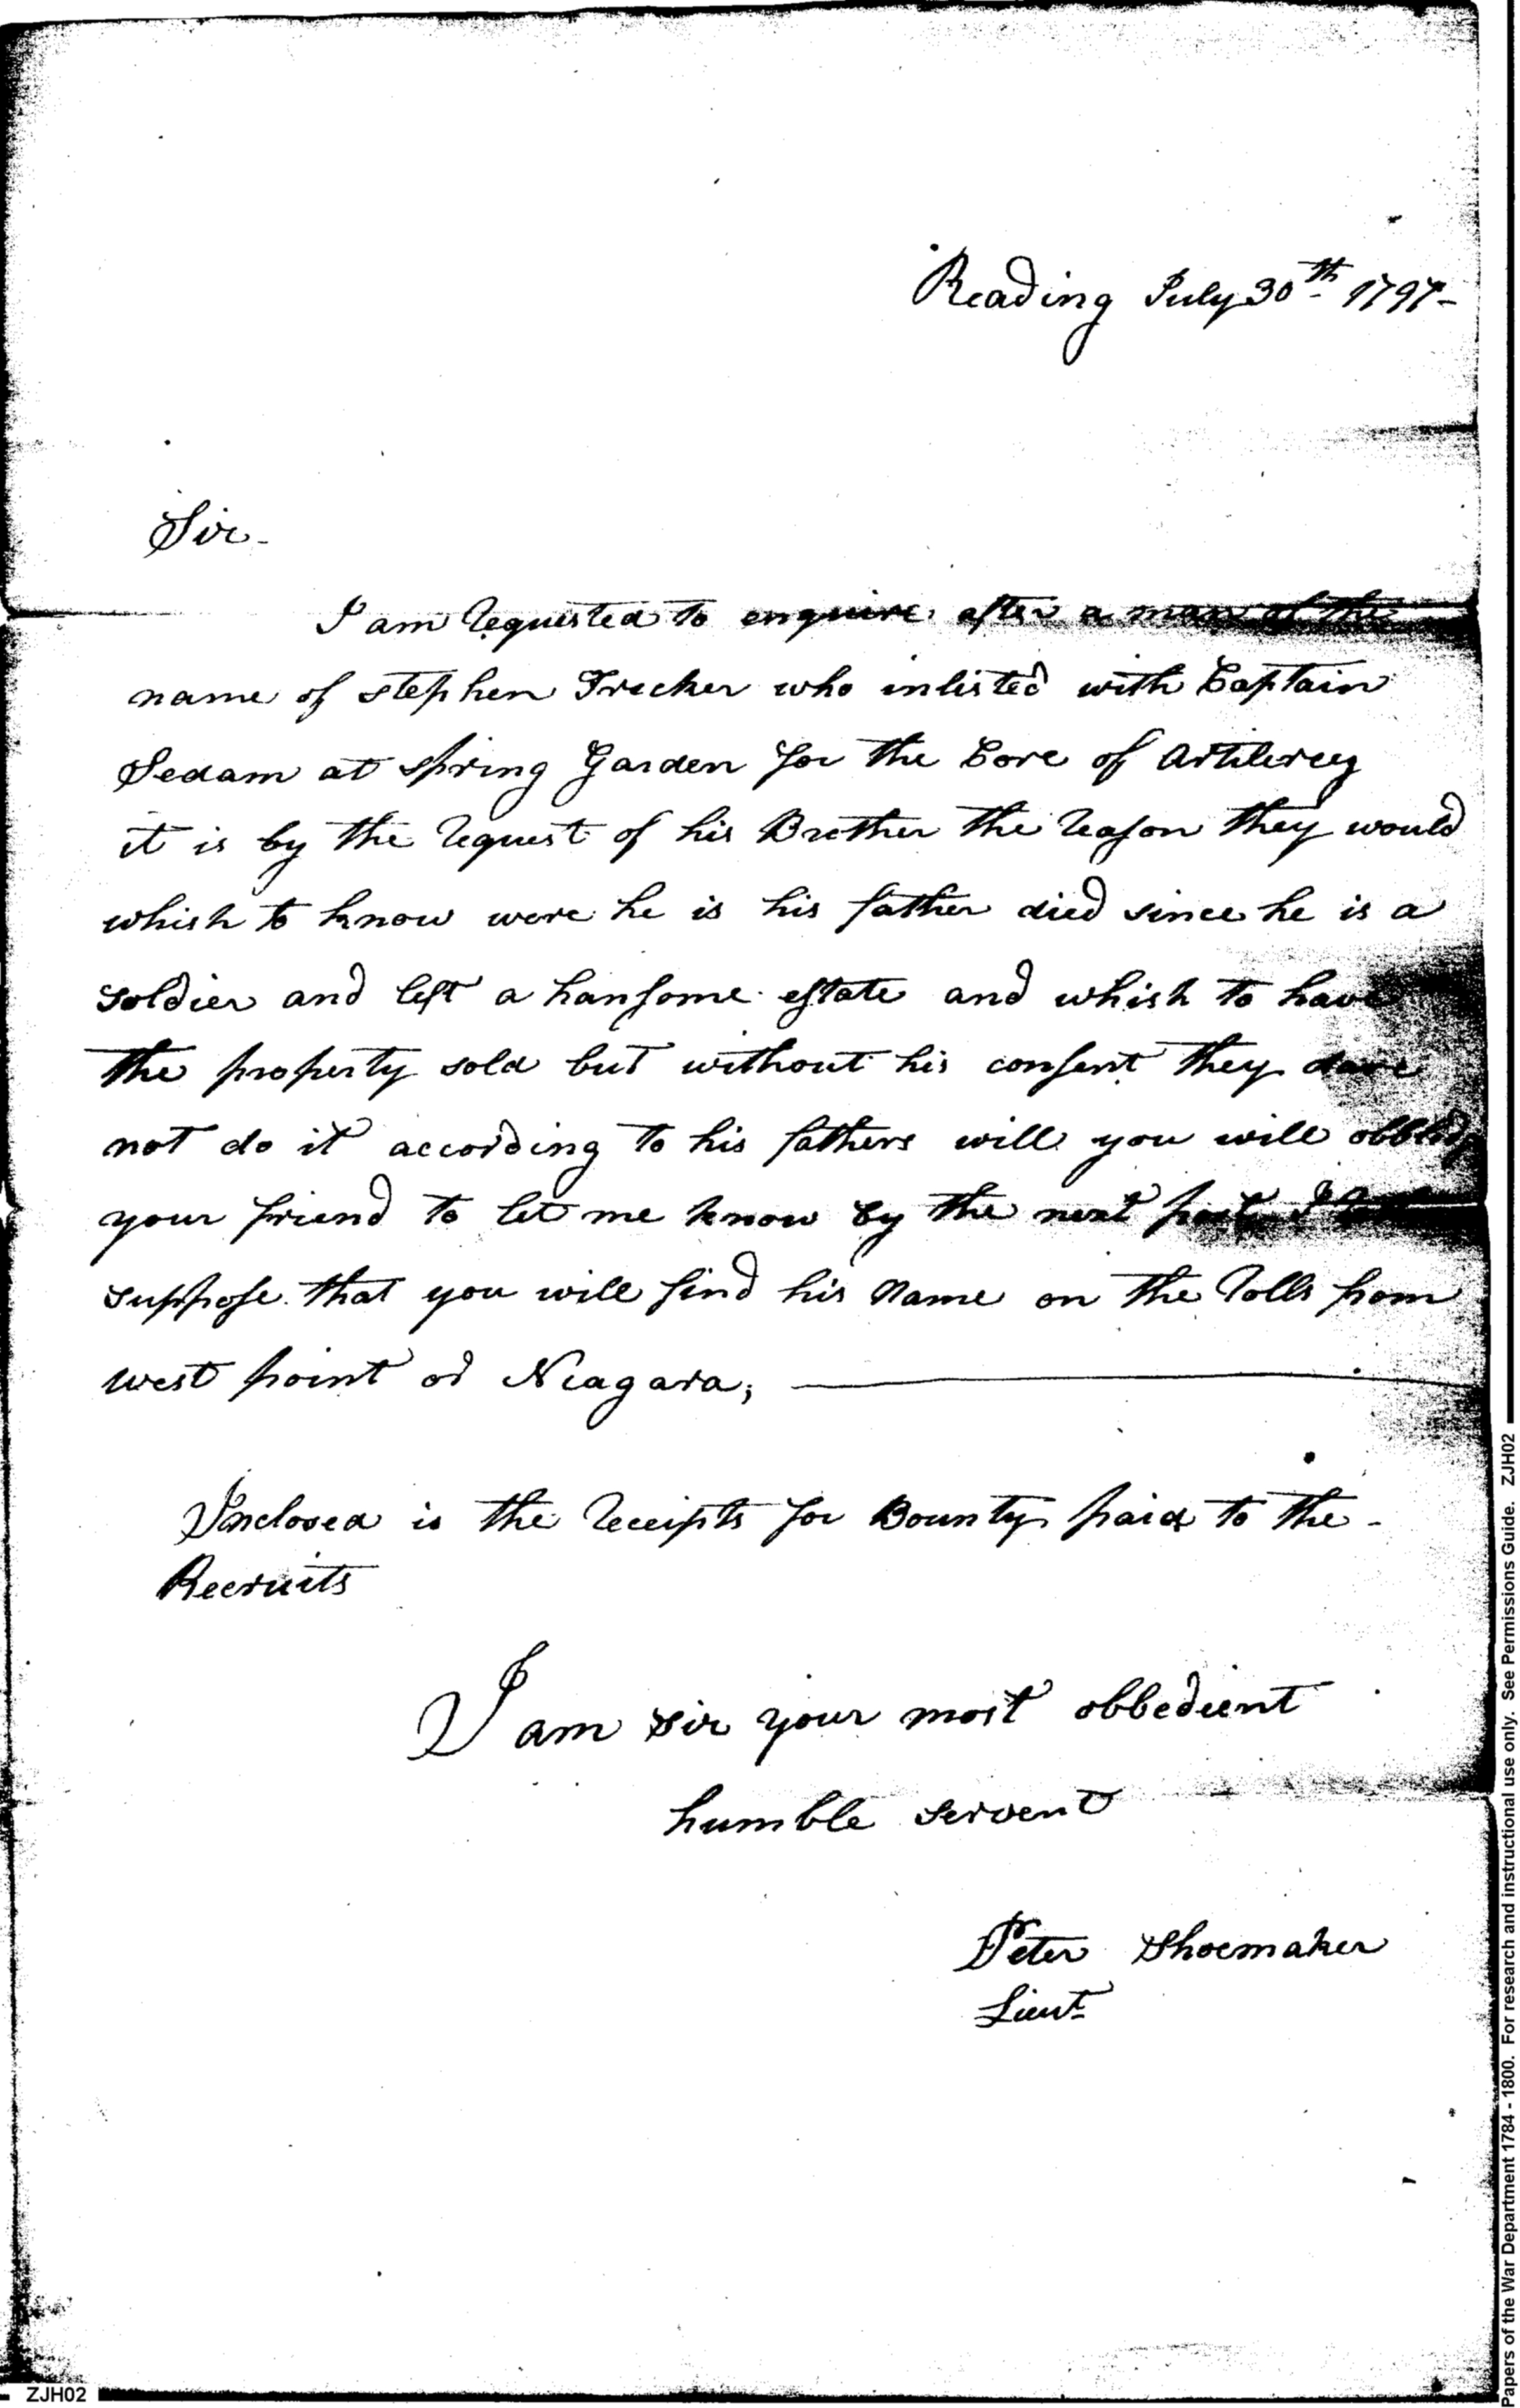 Reading July 30th 1797-
Sir-
I am requested to enquire after a man of the
name of stephen Tricker who inlisted with Captain
Sedam at spring Garden for the Core of Artilerey
it is by the request of his Brother the reason they would
whish to know were he is his father died since he is a
soldier and left a hansome estate and whish to have
the property sold but without his consent they dare
not do it according to his fathers will you will
your friend to let me know by the next post I
suppose that you will find his name on the rolls from
west point or Niagara;
Inclosed is the receipts for Bounty paid to the -
Recruits
I am sir your most obbedient
humble servent
Peter Shoemaker
Lieut
Papers of the War Department 1784 - 1800. For research and instructional use only. See Permissions Guide. ZJH02
ZJH02